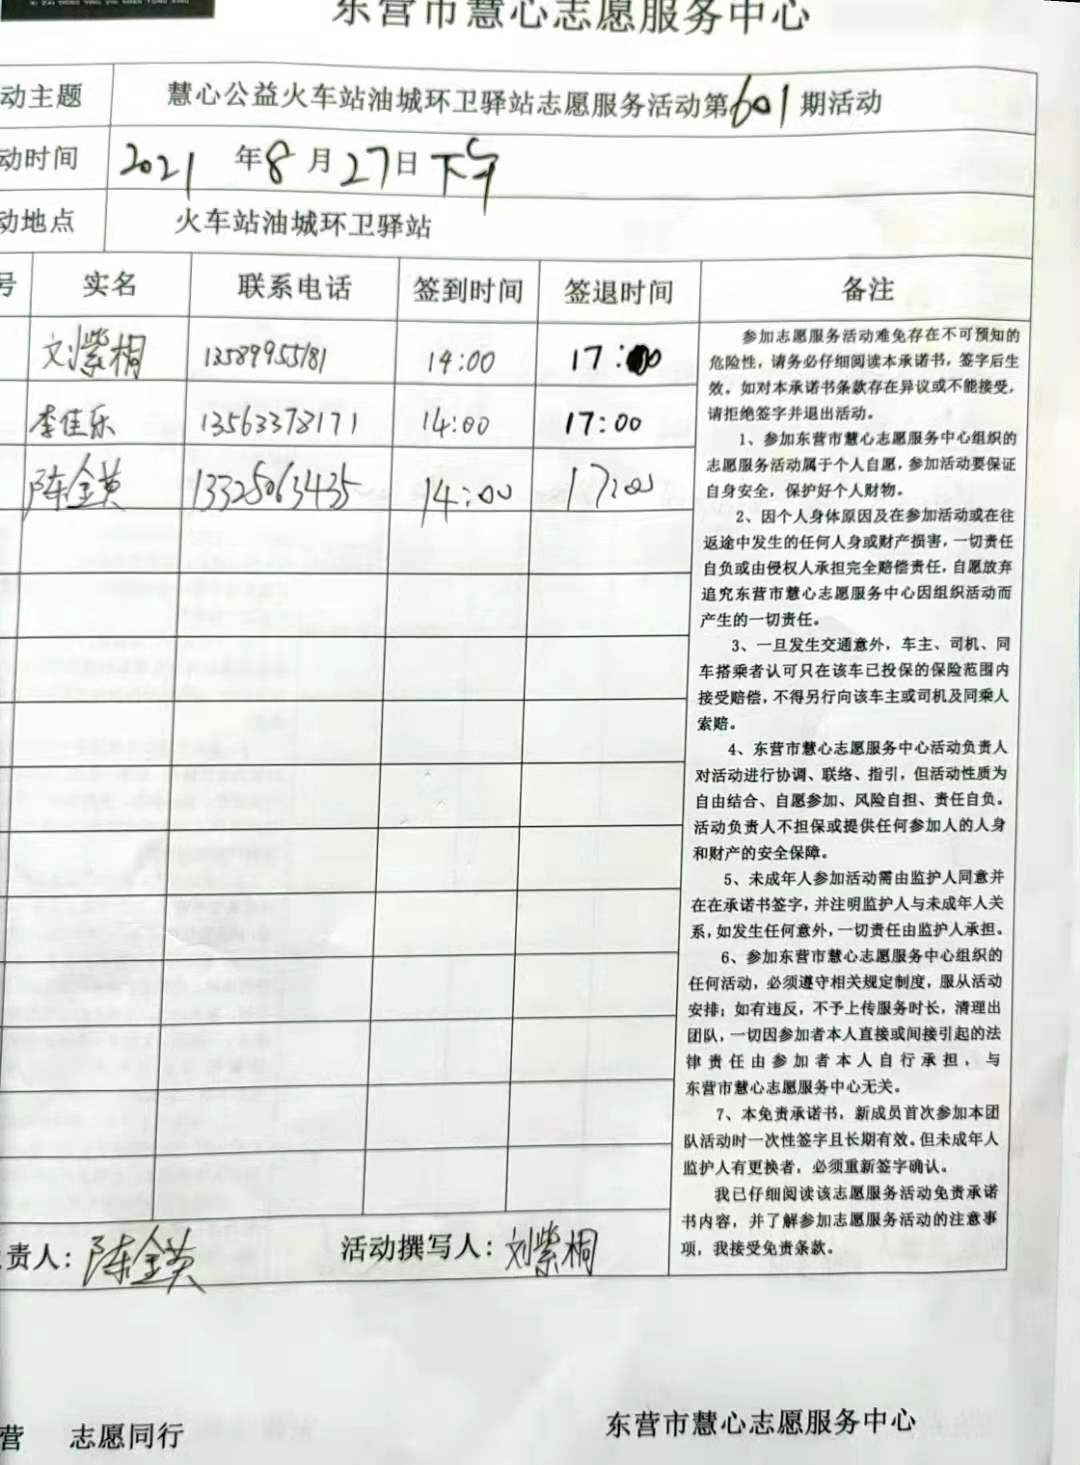 东营市慧心志愿服务中心
动主题 慧心公益火车站油城环卫驿站志愿服务活动第601期活动
动时间 2021 年8月27日下午
动地点 火车站油城环卫驿站
号 实名 联系电话 签到时间 签退时间 备注
刘紫桐 13589955181 14:00 17:00
李佳乐 13563378171 14:00 17:00
陈金英 13325063435 14:00 17:00
参加志愿服务活动难免存在不可预知的
危险性，请务必仔细阅读本承诺书，签字后生
效。如对本承诺书条款存在异议或不能接受，
请拒绝签字并退出活动。
1、参加东营市慧心志愿服务中心组织的
志愿服务活动属于个人自愿，参加活动要保证
自身安全，保护好个人财物。
2、因个人身体原因及在参加活动或在往
返途中发生的任何人身或财产损害，一切责任
自负或由侵权人承担完全赔偿责任，自愿放弃
追究东营市慧心志愿服务中心因组织活动而
产生的一切责任。
3、一旦发生交通意外，车主、司机、同
车搭乘者认可只在该车已投保的保险范围内
接受赔偿，不得另行向该车主或司机及同乘人
索赔。
4、东营市慧心志愿服务中心活动负责人
对活动进行协调、联络、指引，但活动性质为
自由结合、自愿参加、风险自担、责任自负。
活动负责人不担保或提供任何参加人的人身
和财产的安全保障。
5、未成年人参加活动需由监护人同意并
在在承诺书签字，并注明监护人与未成年人关
系，如发生任何意外，一切责任由监护人承担。
6、参加东营市慧心志愿服务中心组织的
任何活动，必须遵守相关规定制度，服从活动
安排；如有违反，不予上传服务时长，清理出
团队，一切因参加者本人直接或间接引起的法
律责任由参加者本人自行承担，与
东营市慧心志愿服务中心无关。
7、本免责承诺书，新成员首次参加本团
队活动时一次性签字且长期有效。但未成年人
监护人有更换者，必须重新签字确认。
我已仔细阅读该志愿服务活动免责承诺
书内容，并了解参加志愿服务活动的注意事
项，我接受免责条款。
责人：陈金英 活动撰写人：刘紫桐
营 志愿同行 东营市慧心志愿服务中心